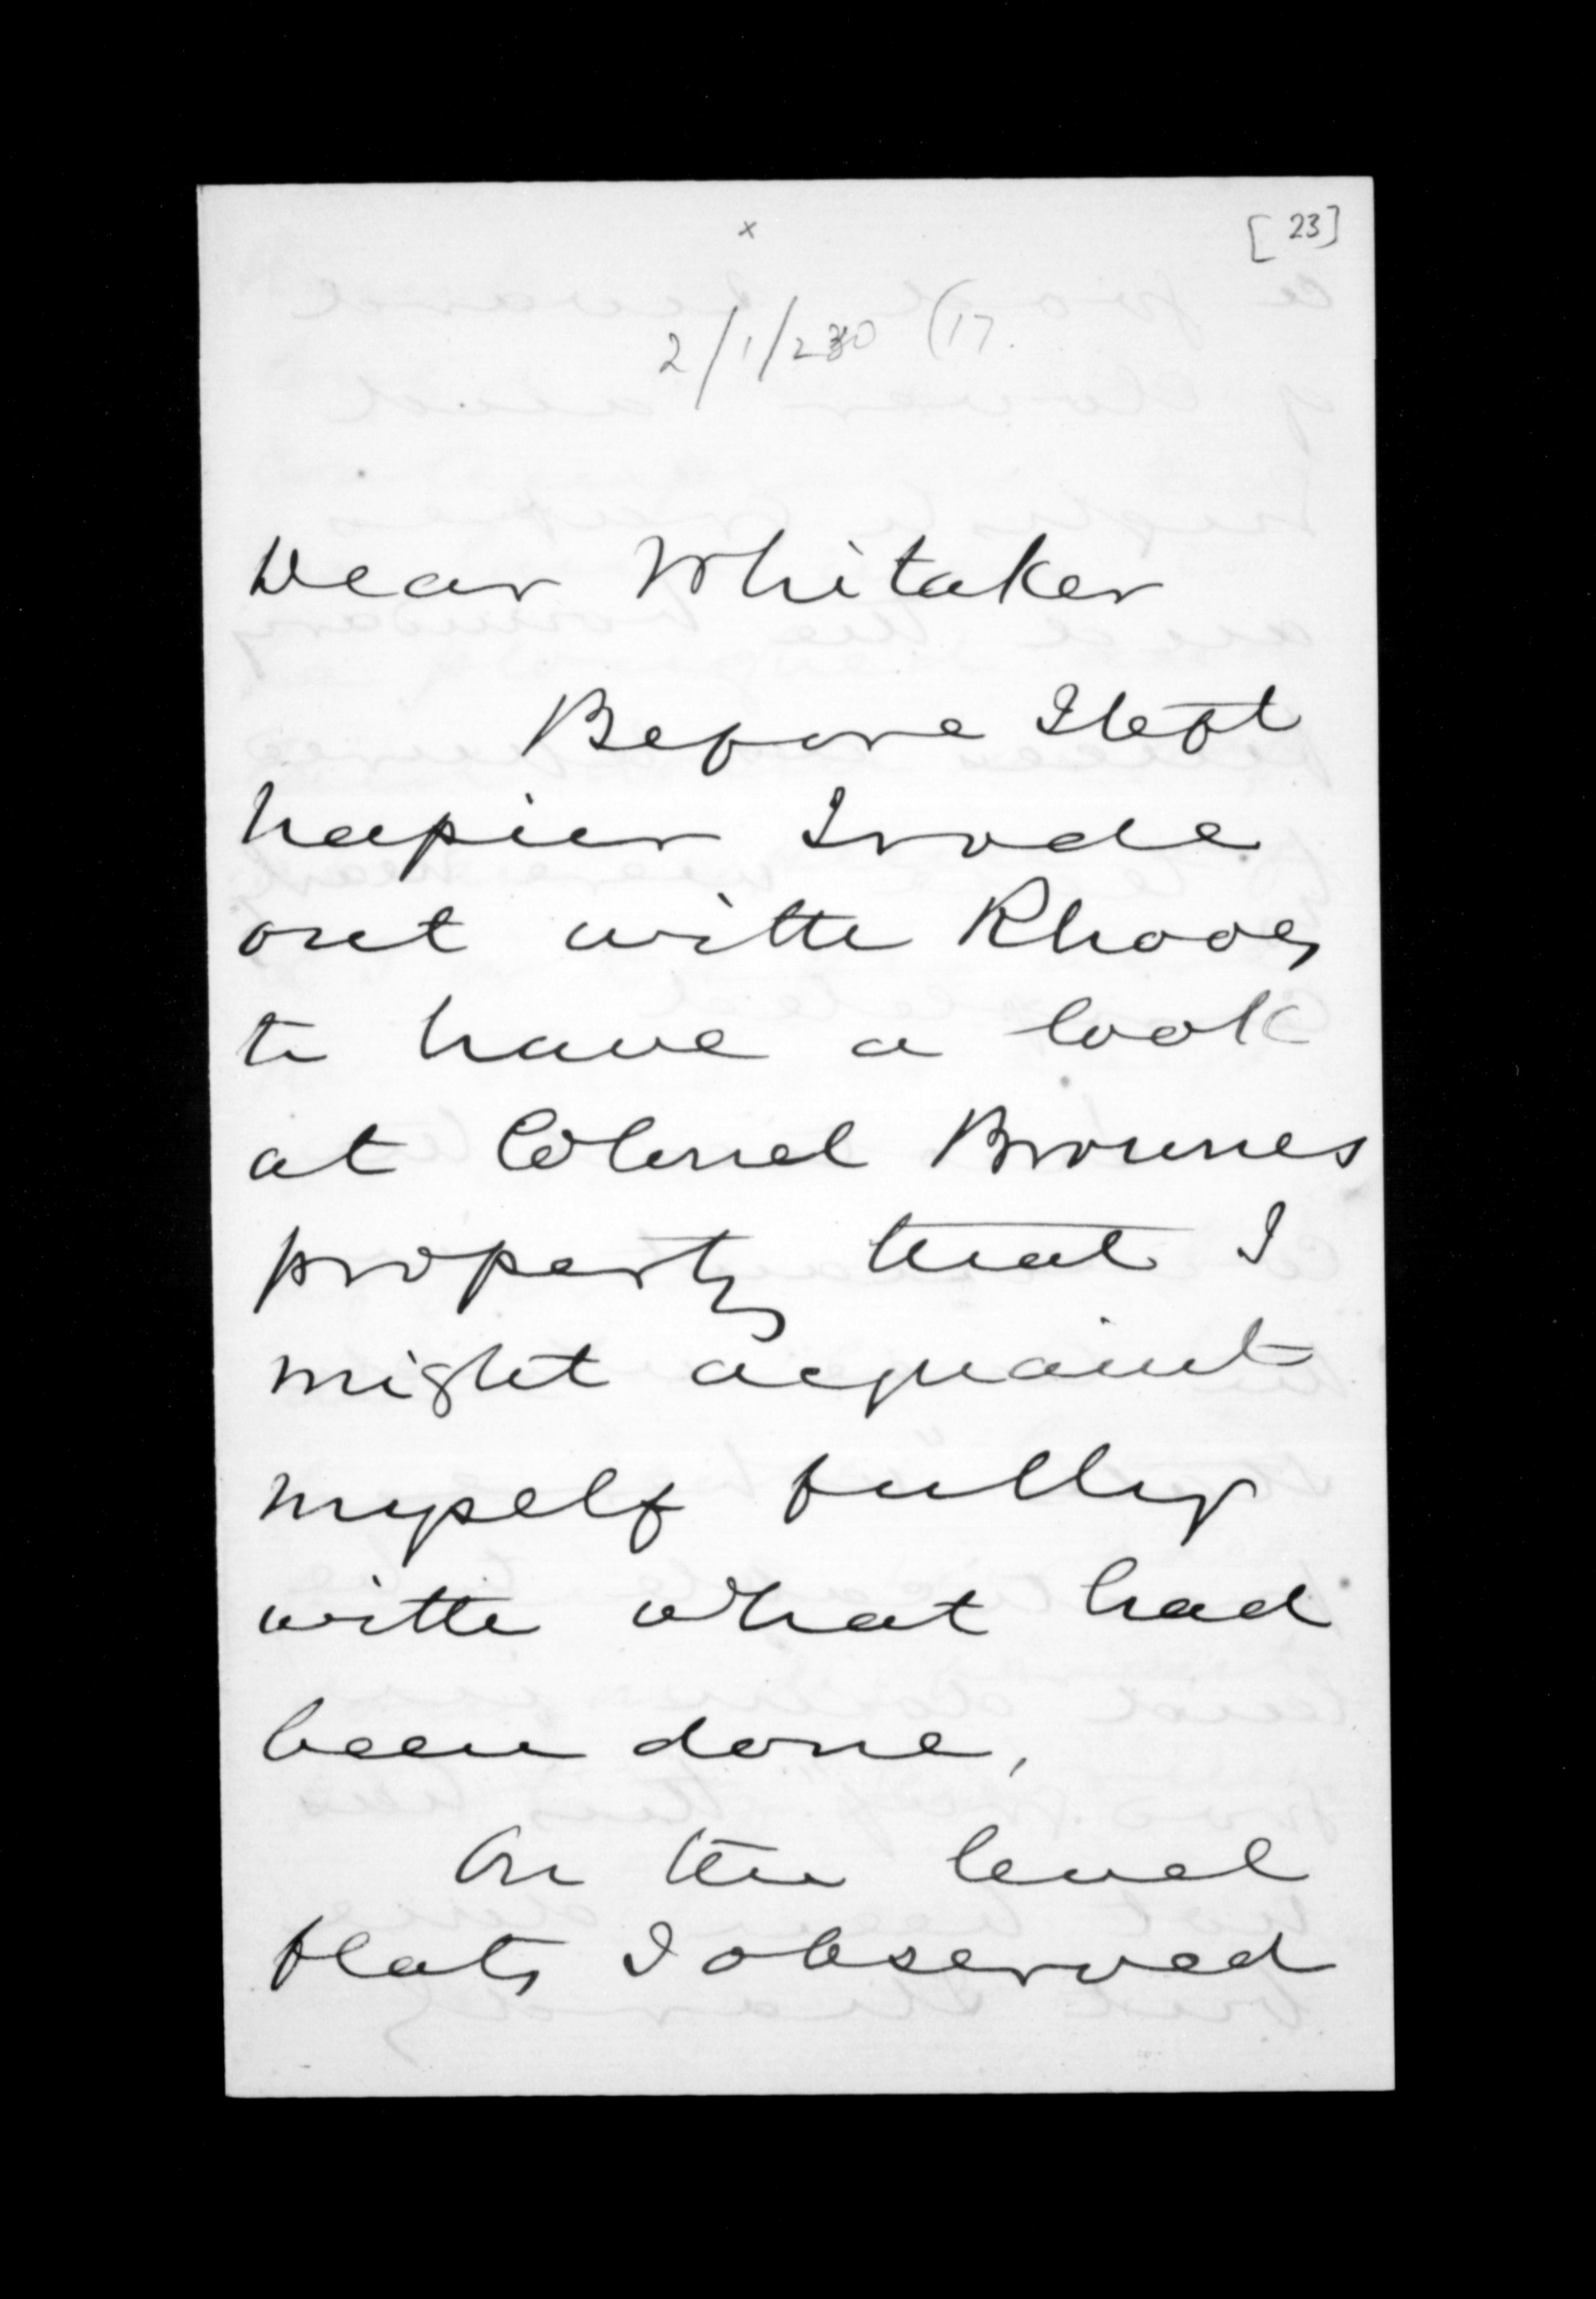 x
[23]
2/1/230 (17.
Dear Whitaker
Before I left
Napier I rode
out with Rhodes
to have a look
at Colonel Brownes
property that I
might acquaint
myself fully
with what had
been done,
On the level
flats I observed